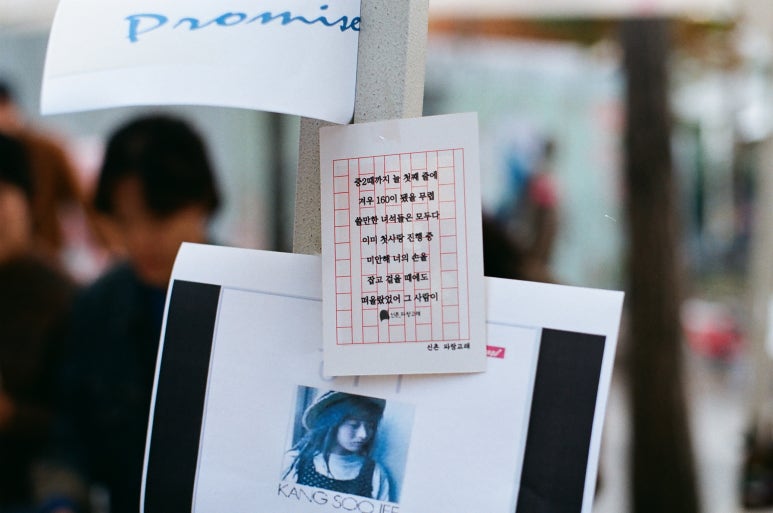 Promise
중2때까지 늘 첫째 줄에
겨우 160이 됐을 무렵
쓸만한 녀석들은 모두다
이미 첫사랑 진행 중
미안해 너의 손을
잡고 걸을 때에도
떠올랐었어 그 사람이
신촌 파랑고래
신촌 파랑고래
KANG SOO JEE